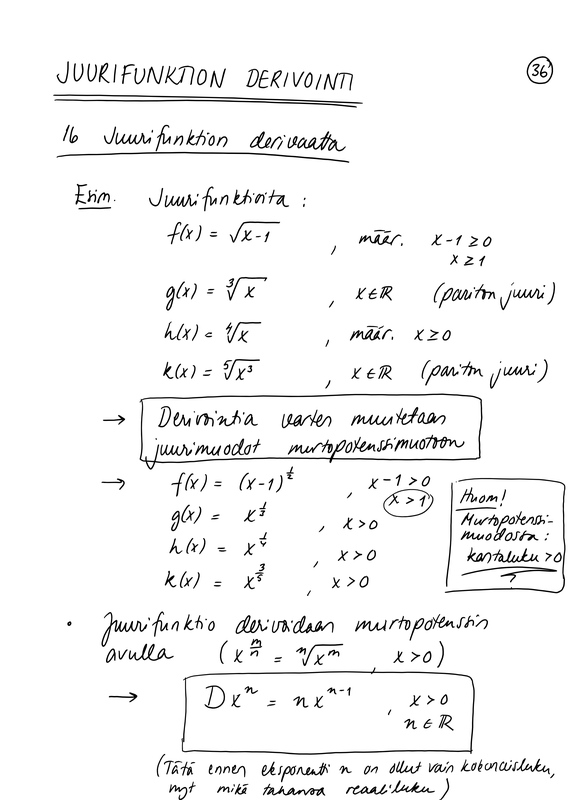 JUURIFUNKTION DERIVOINTI
36
16 Juurifunktion derivaatta
Esim. Juurifunktioita :
f(x) = √(x-1) , määr. x-1 ≥ 0
x ≥ 1
g(x) = ∛x , x ∈ ℝ (pariton juuri)
h(x) = ∜x , määr. x ≥ 0
k(x) = ⁵√(x³) , x ∈ ℝ (pariton juuri)
→ Derivointia varten muutetaan
juurimuodot murtopotenssimuotoon
→ f(x) = (x-1)^(1/2) , x-1 > 0
x > 1
g(x) = x^(1/3) , x > 0
h(x) = x^(1/4) , x > 0
k(x) = x^(3/5) , x > 0
Huom!
Murtopotenssi-
muodossa :
kantaluku > 0
!
• Juurifunktio derivoidaan murtopotenssin
avulla (x^(m/n) = ⁿ√(x^m) , x > 0)
→ D x^n = n x^(n-1) , x > 0
n ∈ ℝ
(Tätä ennen eksponentti n on ollut vain kokonaisluku,
nyt mikä tahansa reaaliluku)